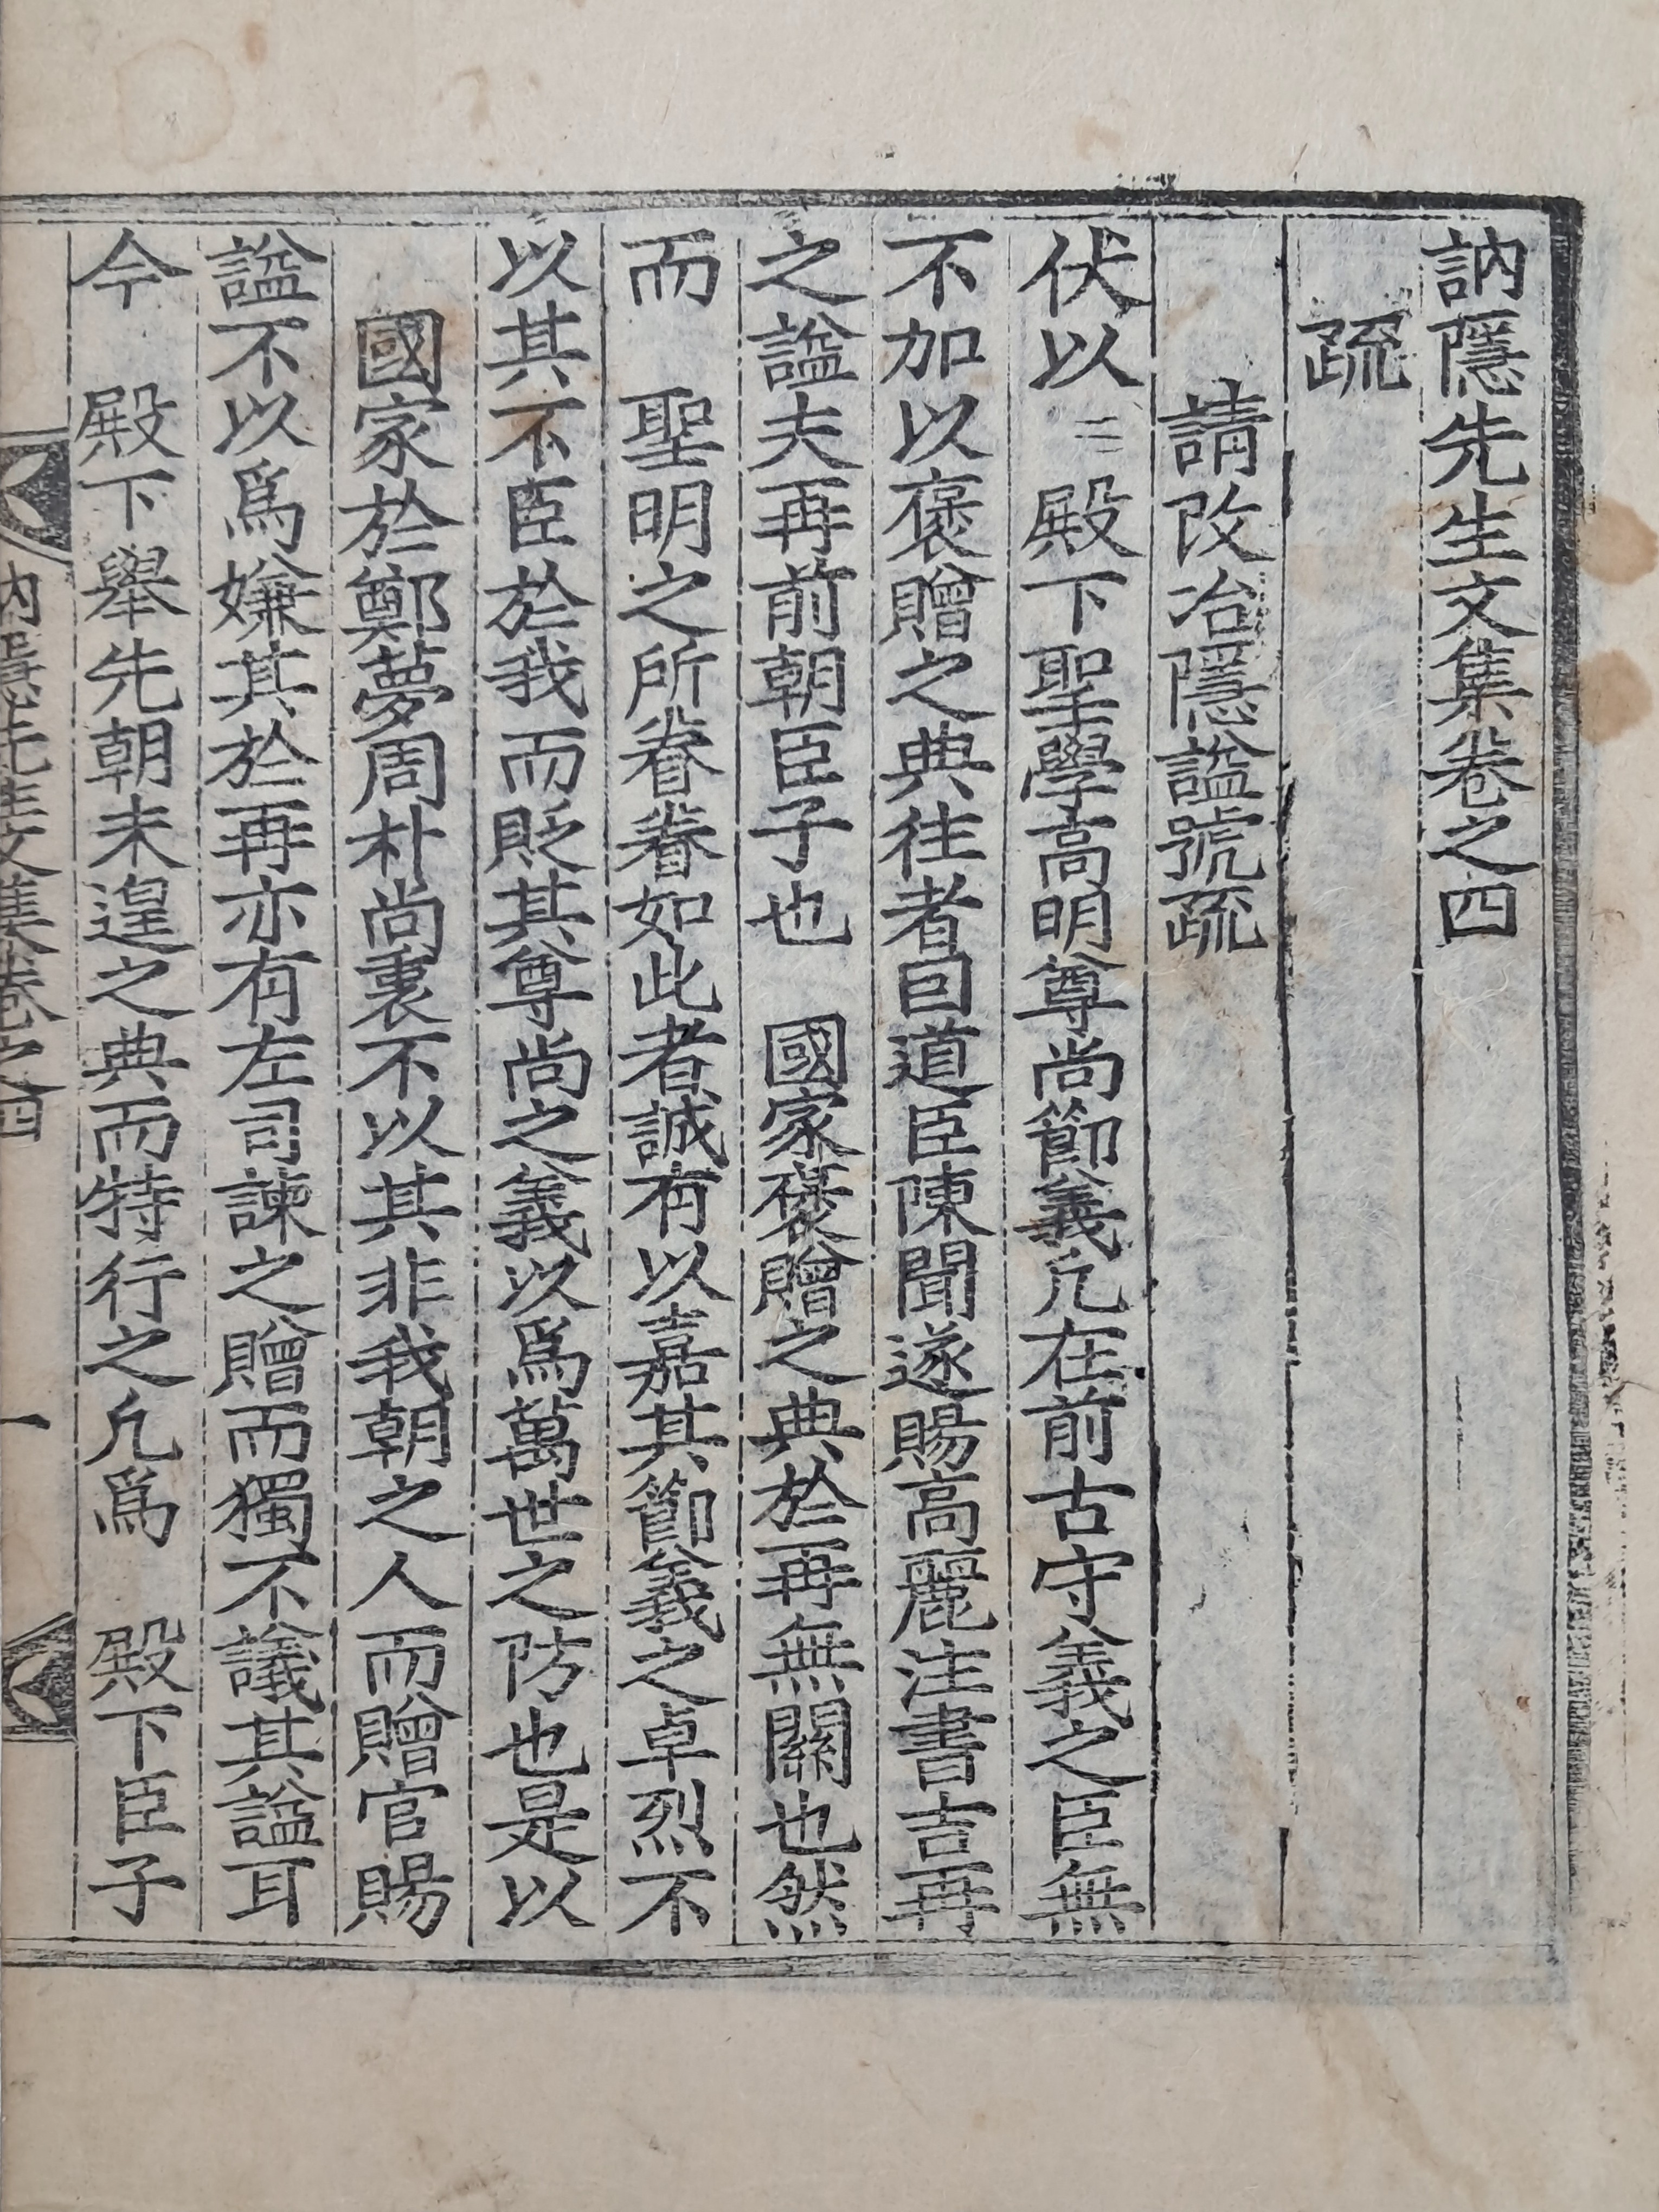 訥隱先生文集卷之四
疏
請改冶隱諡號疏
伏以 殿下聖學高明尊尚節義凡在前古守義之臣無
不加以褒贈之典往者因道臣陳聞遂賜高麗注書吉再
之諡夫再前朝臣子也 國家褒贈之典於再無關也然
而 聖明之所眷眷如此者誠有以嘉其節義之卓烈不
以其不臣於我而貶其尊尚之義以爲萬世之防也是以
國家於鄭夢周朴尚衷不以其非我朝之人而贈官賜
諡不以爲嫌其於再亦有左司諫之贈而獨不議其諡耳
今 殿下舉先朝未遑之典而特行之凡爲 殿下臣子
訥隱先生文集卷之四 一